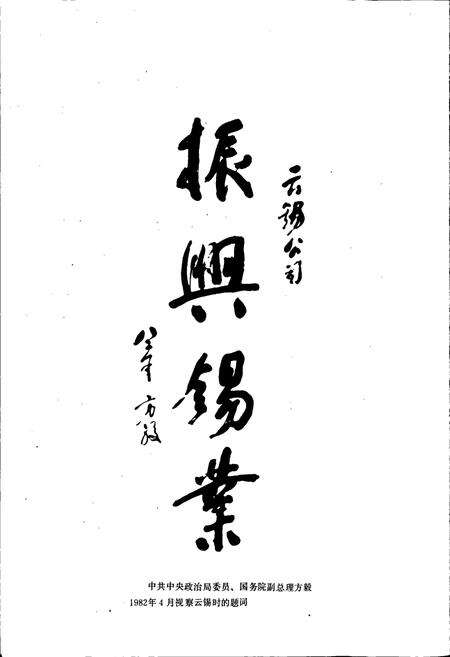 云锡公司
振興錫業
方毅
中共中央政治局委员、国务院副总理方毅
1982年4月视察云锡时的题词